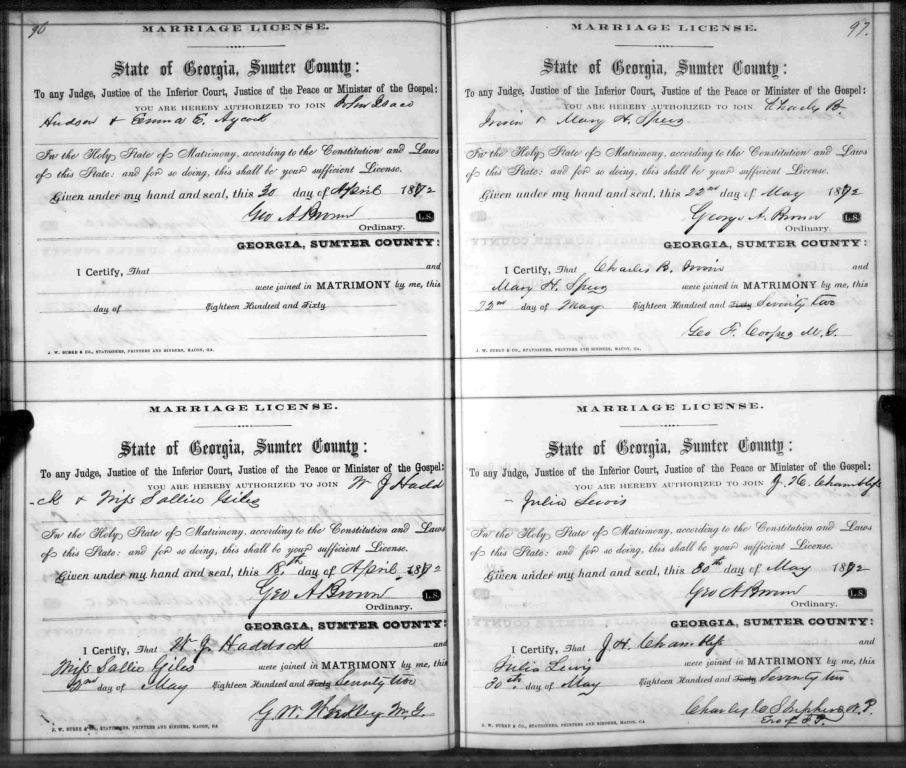 96
MARRIAGE LICENSE.
State of Georgia, Sumter County:
To any Judge, Justice of the Inferior Court, Justice of the Peace or Minister of the Gospel:
YOU ARE HEREBY AUTHORIZED TO JOIN John Isaac
Hudson & Emma E. Aycock
In the Holy State of Matrimony, according to the Constitution and Laws
of this State: and for so doing, this shall be your sufficient License.
Given under my hand and seal, this 20 day of April 1872
Geo A Brown L.S.
Ordinary.
GEORGIA, SUMTER COUNTY:
I Certify, That and
were joined in MATRIMONY by me, this
day of Eighteen Hundred and Sixty
J. W. BURKE & CO., STATIONERS, PRINTERS AND BINDERS, MACON, GA.
MARRIAGE LICENSE.
State of Georgia, Sumter County:
To any Judge, Justice of the Inferior Court, Justice of the Peace or Minister of the Gospel:
YOU ARE HEREBY AUTHORIZED TO JOIN W J Hadd
-ck & Miss Sallie Giles
In the Holy State of Matrimony, according to the Constitution and Laws
of this State: and for so doing, this shall be your sufficient License.
Given under my hand and seal, this 18th day of April 1872
Geo A Brown L.S.
Ordinary.
GEORGIA, SUMTER COUNTY:
I Certify, That W. J. Haddock and
Miss Sallie Giles were joined in MATRIMONY by me, this
2nd day of May Eighteen Hundred and Sixty Seventy two
G. W. M.G.
J. W. BURKE & CO., STATIONERS, PRINTERS AND BINDERS, MACON, GA.
97.
MARRIAGE LICENSE.
State of Georgia, Sumter County:
To any Judge, Justice of the Inferior Court, Justice of the Peace or Minister of the Gospel:
YOU ARE HEREBY AUTHORIZED TO JOIN Charles B.
Irwin & Mary H. Speer
In the Holy State of Matrimony, according to the Constitution and Laws
of this State: and for so doing, this shall be your sufficient License.
Given under my hand and seal, this 22nd day of May 1872
George A. Brown L.S.
Ordinary.
GEORGIA, SUMTER COUNTY:
I Certify, That Charles B. Irwin and
Mary H. Speer were joined in MATRIMONY by me, this
22nd day of May Eighteen Hundred and Sixty Seventy two
Geo F. Cooper M.G.
J. W. BURKE & CO., STATIONERS, PRINTERS AND BINDERS, MACON, GA.
MARRIAGE LICENSE.
State of Georgia, Sumter County:
To any Judge, Justice of the Inferior Court, Justice of the Peace or Minister of the Gospel:
YOU ARE HEREBY AUTHORIZED TO JOIN J. H. Chambliss
- Julia Lewis
In the Holy State of Matrimony, according to the Constitution and Laws
of this State: and for so doing, this shall be your sufficient License.
Given under my hand and seal, this 30th day of May 1872
Geo A Brown L.S.
Ordinary.
GEORGIA, SUMTER COUNTY:
I Certify, That J. H. Chambliss and
Julia were joined in MATRIMONY by me, this
30th day of May Eighteen Hundred and Sixty Seventy two
Charley C Shepherd N.P.
J. W. BURKE & CO., STATIONERS, PRINTERS AND BINDERS, MACON, GA